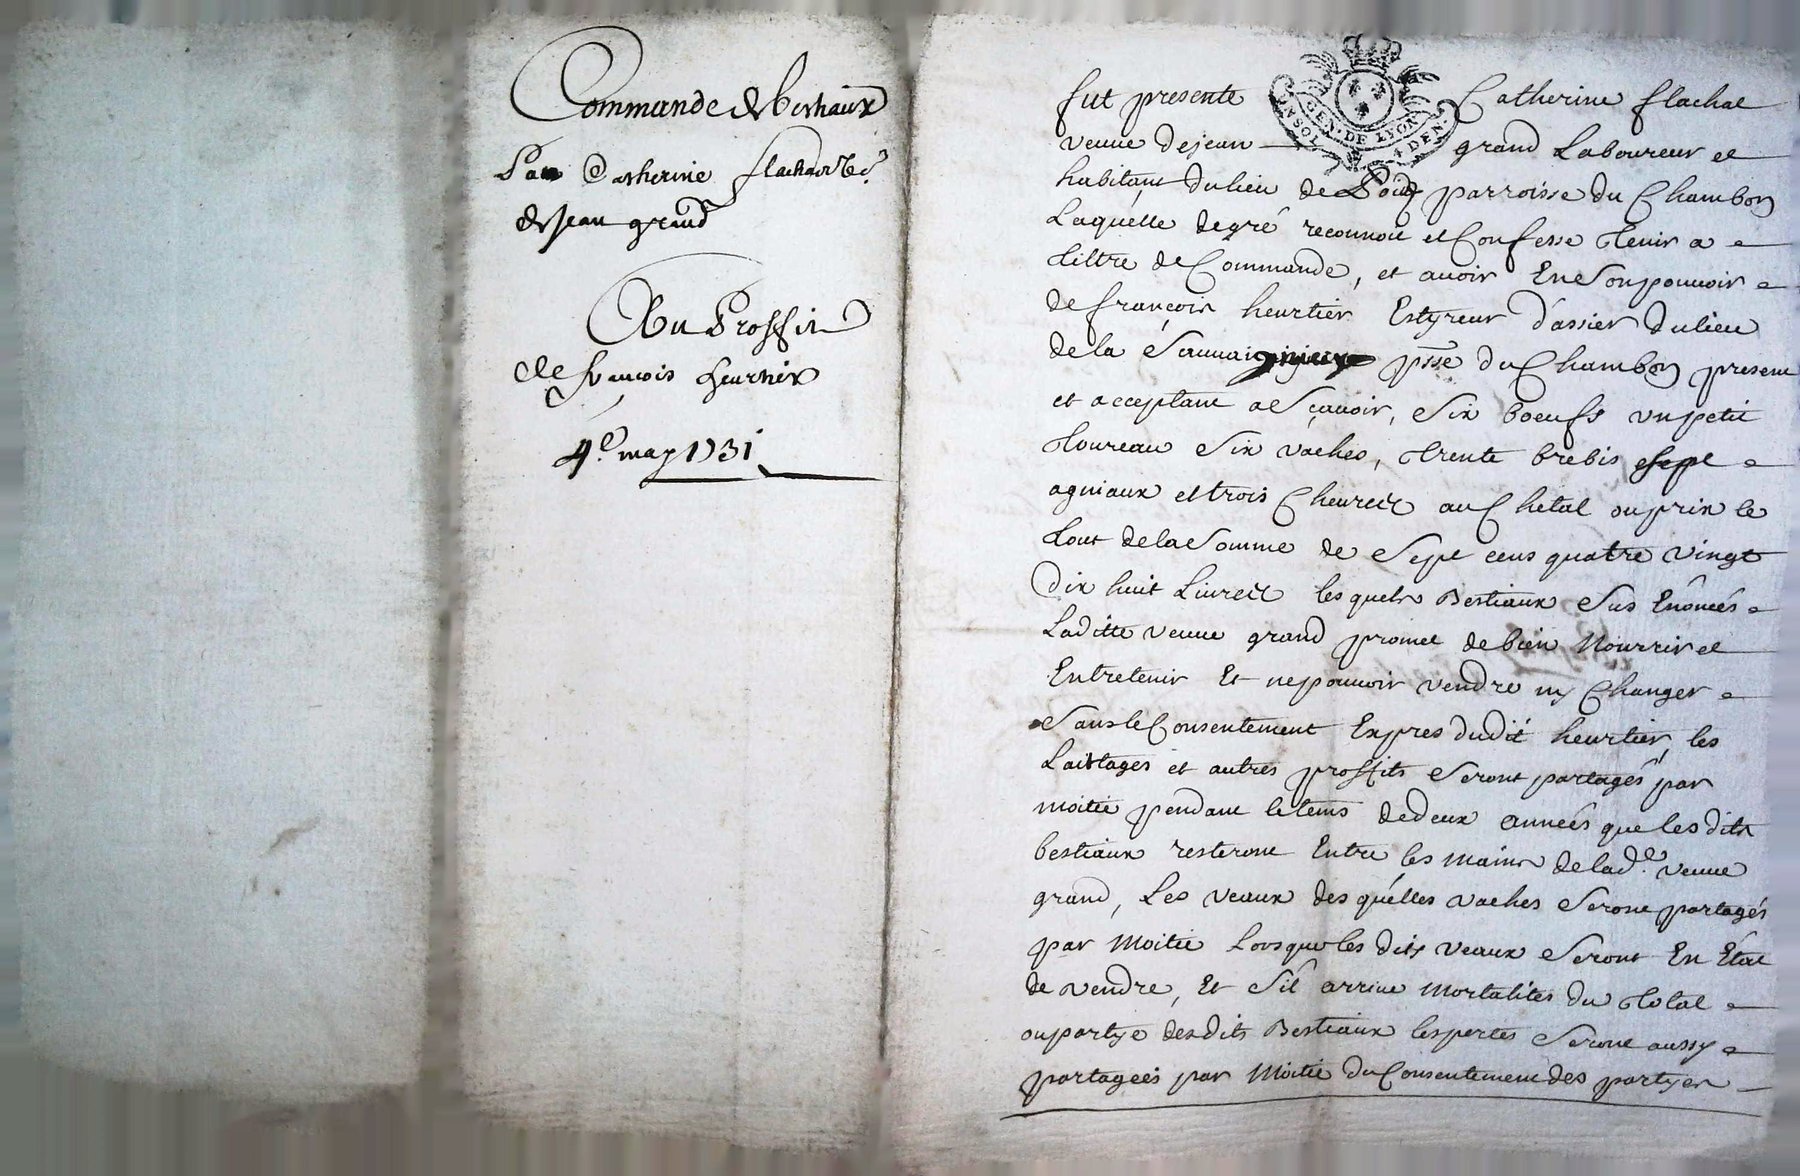 Commande de bestiaux
Par Catherine flachat ve.
de jean grand
Au Proffit
de françois heurtier
4e. may 1731
GEN. DE LYON
fut presente Catherine flachat
veuve de jean grand Laboureur et
habitant du lieu de parroisse du Chambon
Laquelle de gré reconnoit et Confesse tenir a
tiltre de Commande, et avoir En Son pouvoir
de françois heurtier Estyreur d'assier du lieu
de la psse du Chambon present
et acceptant a Sçavoir, Six boeufs un petit
toureau Six vaches, trente brebis sept
agniaux et trois Chevres au Chetal ou prix le
tout de la Somme de Sept cens quatre vingt
dix huit Livres lesquels Bestiaux Sus Enoncés
Laditte veuve grand promet de bien Nourrir et
Entretenir Et ne pouvoir vendre ny Changer
Sans le Consentement Expres dudit heurtier, les
Laittages et autres proffits Seront partagés par
moitié pendant le tems de deux années que lesdits
bestiaux resteront Entre les mains de lade. veuve
grand, Les veaux desquélles vaches Seront partagés
par Moitié Lorsque les dits veaux Seront En Etat
de vendre, Et S'il arrive Mortalités du total
ou partye desdits Bestiaux les pertes Seront aussy
partagées par Moitié du Consentement des partyes